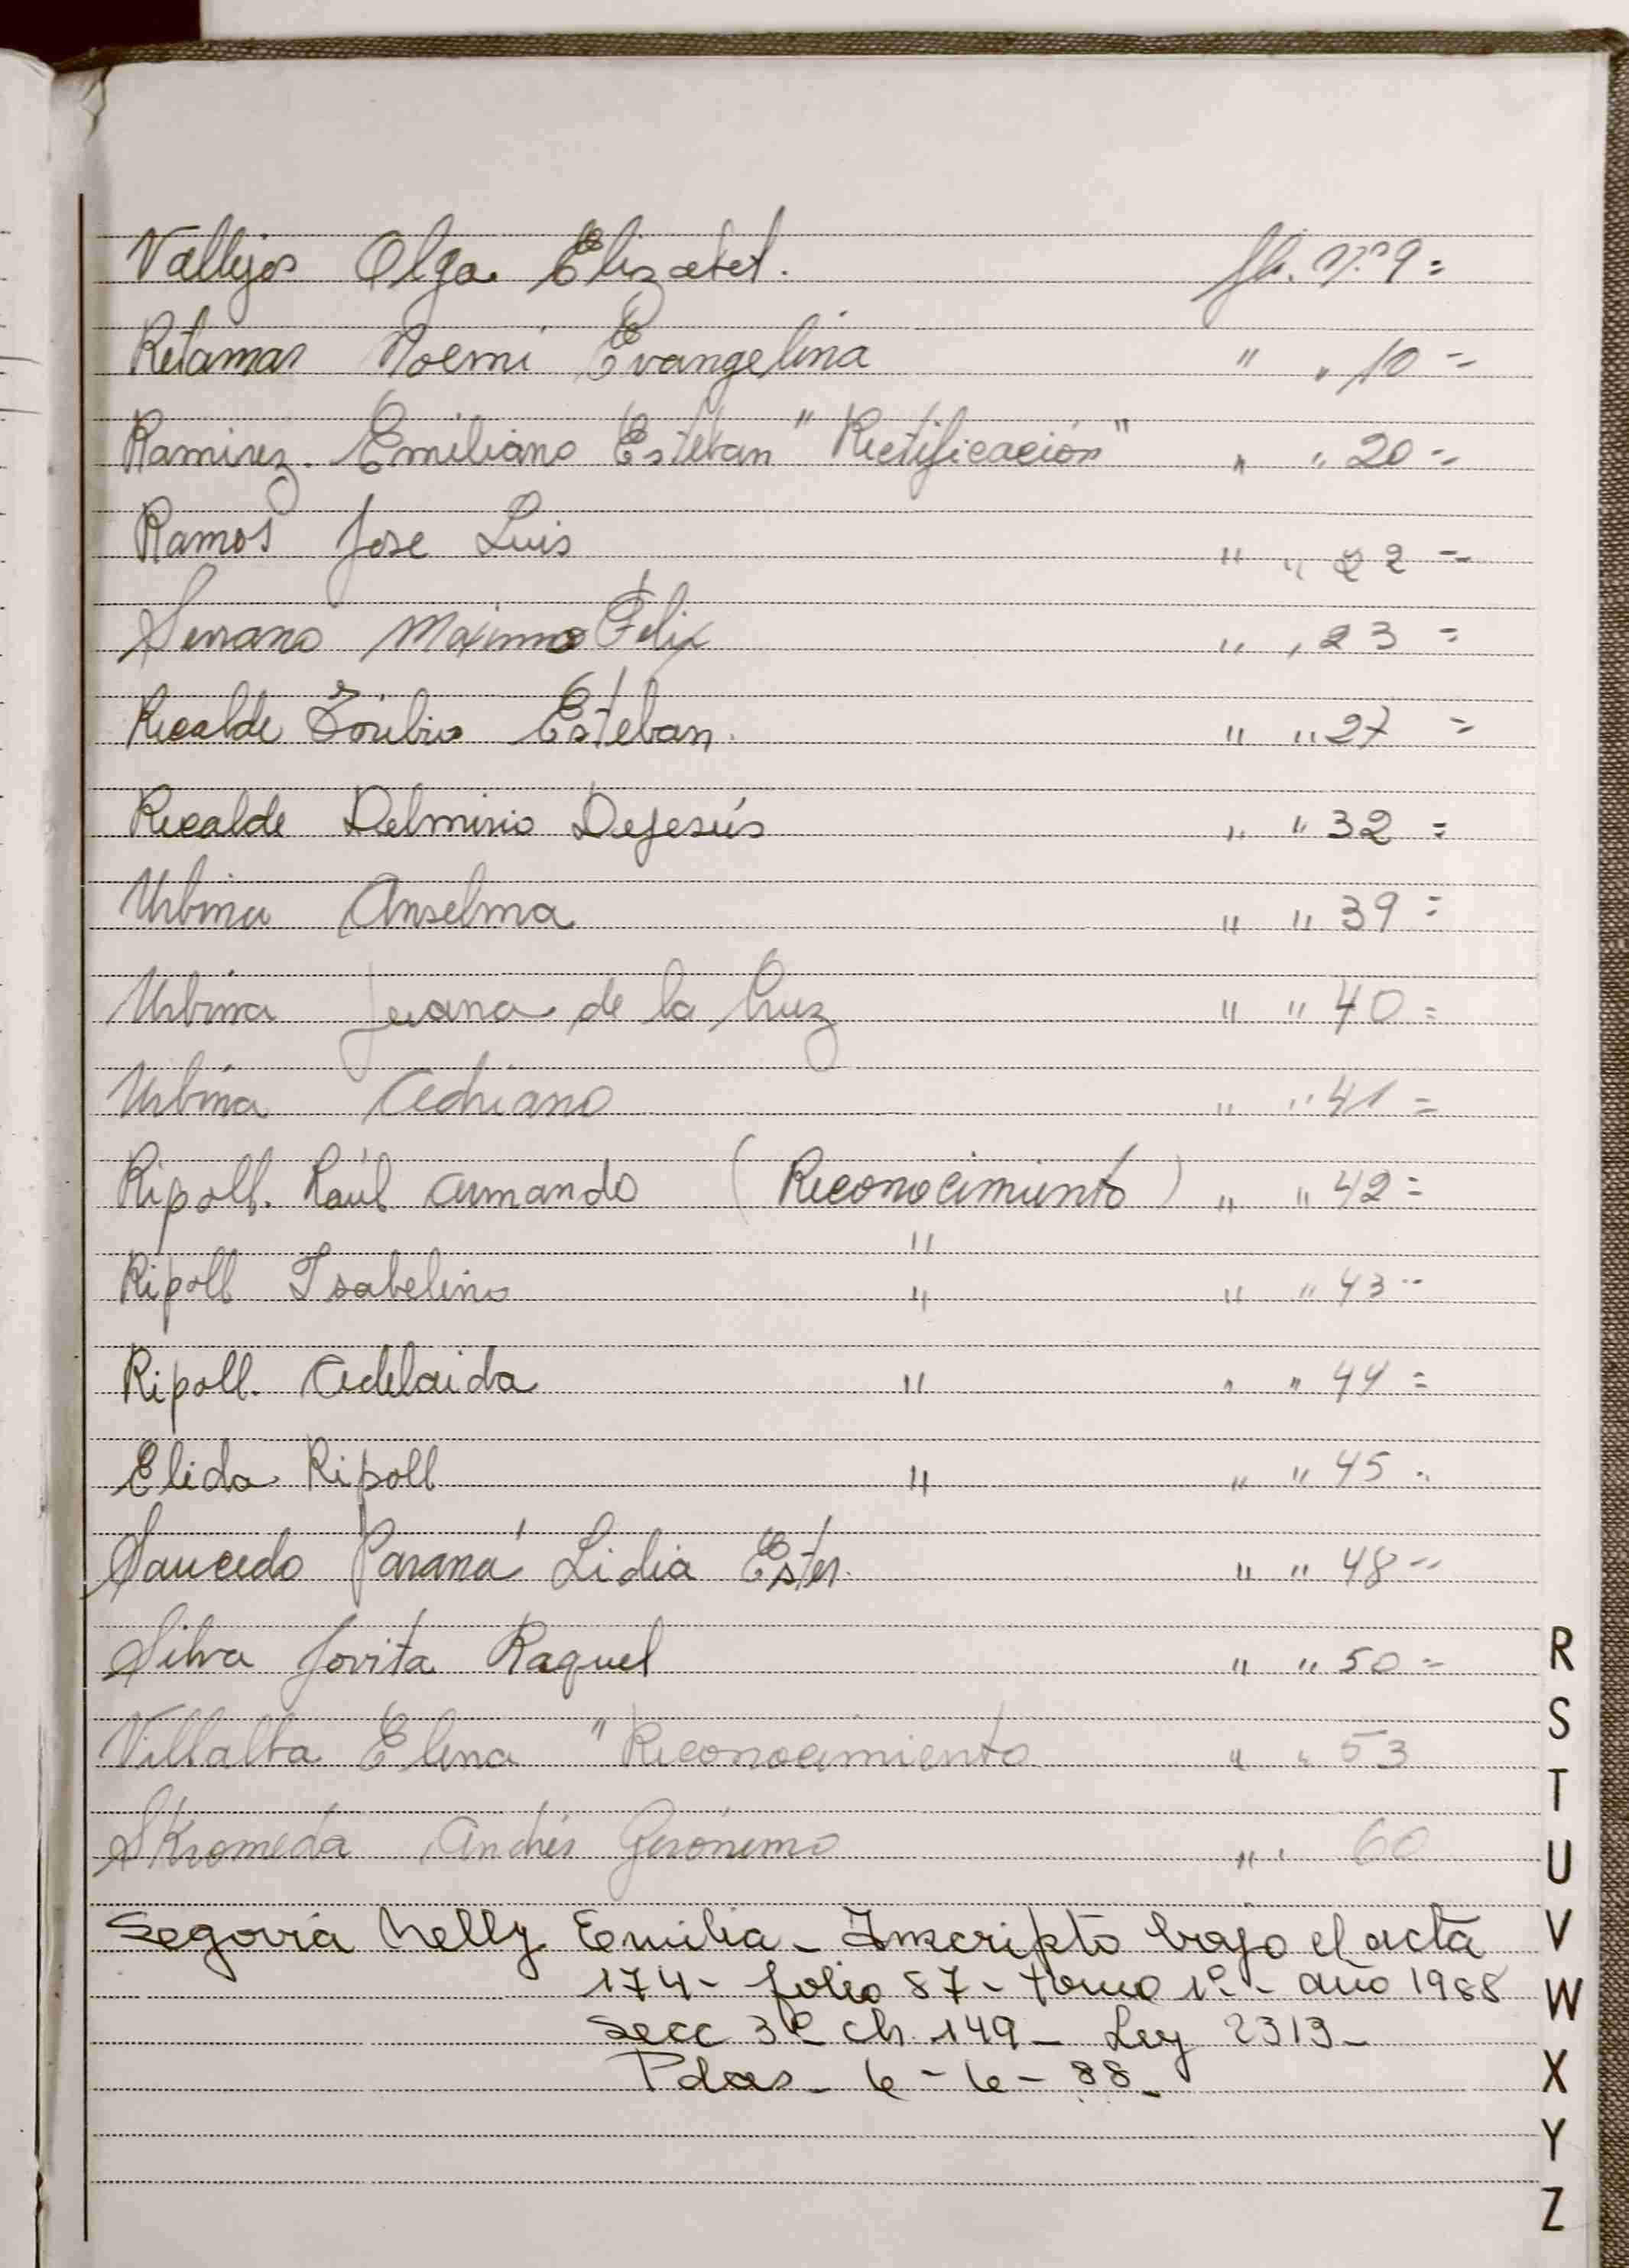 Vallejos Olga Elizabet. fli. Nº 9 =
Retamar Noemi Evangelina " " 10 =
Ramirez. Emiliano Esteban "Rectificación" " " 20 =
Ramos Jose Luis " " 22 =
Serrano Maximo Felix " " 23 =
Recalde Toribio Esteban. " " 27 =
Recalde Delmirio Dejesús " " 32 =
Urbina Anselma " " 39 =
Urbina Juana de la Cruz " " 40 =
Urbina Adriano " " 41 =
Ripoll. Raúl Armando (Reconocimiento) " " 42 =
"
Ripoll Isabelino " " " 43 =
Ripoll. Adelaida " " " 44 =
Elida Ripoll " " " 45 =
Saucedo Paraná Lidia Ester. " " 48 =
Silva Jovita Raquel " " 50 =
Villalba Elena "Reconocimiento " " 53
Skromeda Andrés Gerónimo " " 60
Segovia Nelly Emilia - Inscripto bajo el acta
174 - folio 87 - tomo 1º - año 1988
Secc 3º ch. 149 - Ley 2313 -
Pdas - 6 - 6 - 88 -
R
S
T
U
V
W
X
Y
Z